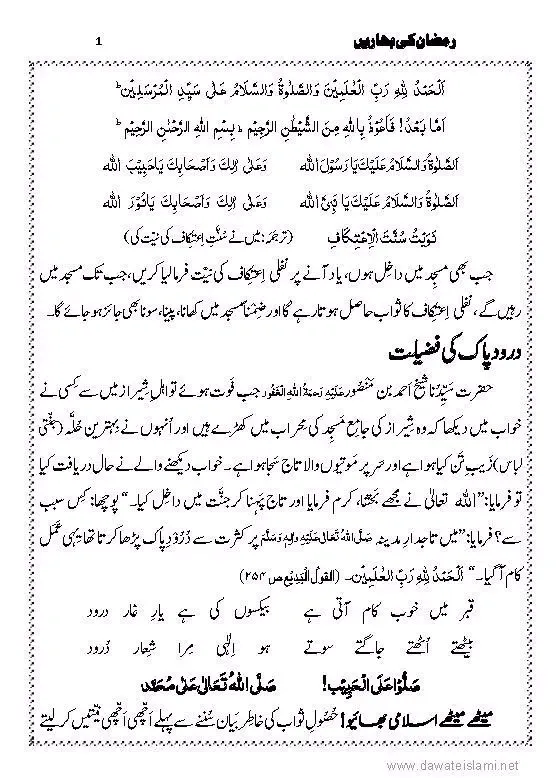 رمضان کی بهاریں 1
اَلْحَمْدُ لِلّٰهِ رَبِّ الْعٰلَمِیْنَ وَالصَّلٰوةُ وَالسَّلَامُ عَلٰی سَیِّدِ الْمُرْسَلِیْنَ ؕ
اَمَّا بَعْدُ! فَاَعُوْذُ بِاللهِ مِنَ الشَّیْطٰنِ الرَّجِیْمِ ؕ بِسْمِ اللهِ الرَّحْمٰنِ الرَّحِیْمِ ؕ
اَلصَّلٰوةُ وَالسَّلَامُ عَلَیْكَ یَا رَسُوْلَ الله وَعَلٰی اٰلِكَ وَاَصْحَابِكَ یَا حَبِیْبَ الله
اَلصَّلٰوةُ وَالسَّلَامُ عَلَیْكَ یَا نَبِیَّ الله وَعَلٰی اٰلِكَ وَاَصْحَابِكَ یَا نُوْرَ الله
نَوَیْتُ سُنَّتَ الْاِعْتِكَاف (ترجمہ: میں نے سُنّتِ اعتکاف کی نیت کی)
جب بھی مسجد میں داخل ہوں، یاد آنے پر نفلی اِعتکاف کی نیّت فرما لیا کریں، جب تک مسجد میں
رہیں گے، نفلی اِعتکاف کا ثواب حاصل ہوتا رہے گا اور ضِمْناً مسجد میں کھانا، پینا، سونا بھی جائز ہو جائے گا۔
درود پاک کی فضیلت
حضرت سَیِّدُنا شیخ احمد بن مَنْصُور عَلَیْهِ رَحمَةُ اللهِ الْغَفُوْر جب فوت ہوئے تو اہلِ شیراز میں سے کسی نے
خواب میں دیکھا کہ وہ شیراز کی جامع مَسْجِد کی مِحراب میں کھڑے ہیں اور اُنہوں نے بہترین حُلّہ (جنّتی
لباس) زَیب تَن کیا ہوا ہے اور سر پر موتیوں والا تاج سجا ہوا ہے۔ خواب دیکھنے والے نے حال دریافت کیا
تو فرمایا: ”اللہ تعالیٰ نے مجھے بخشا، کرم فرمایا اور تاج پہنا کر جنّت میں داخِل کیا۔“ پوچھا: کِس سبب
سے؟ فرمایا: ”میں تاجدارِ مدینہ صَلَّی اللهُ تَعَالٰی عَلَیْهِ وَاٰلِهٖ وَسَلَّم پر کثرت سے دُرُودِ پاک پڑھا کرتا تھا یہی عمل
کام آ گیا۔“ اَلْحَمْدُ لِلّٰهِ رَبِّ الْعٰلَمِیْنَ۔ (القولُ الْبَدِیْع ص ۲۵۴)
قبر میں خوب کام آتی ہے بیکسوں کی ہے یارِ غار درود
بیٹھتے اُٹھتے جاگتے سوتے ہو اِلٰہی مِرا شِعار دُرود
صَلُّوْا عَلَی الْحَبِیْب! صَلَّی اللهُ تَعَالٰی عَلٰی مُحَمَّد
میٹھے میٹھے اسلامی بھائیو! حُصُولِ ثواب کی خاطِر بَیان سُننے سے پہلے اَچھی اَچھی نیّتیں کر لیتے
www.dawateislami.net